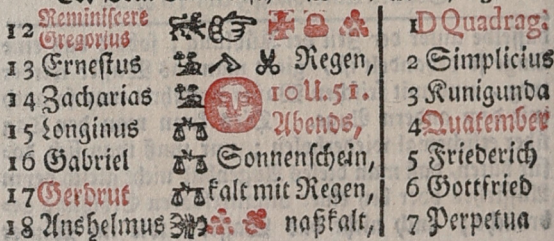 12 Reminiscere
Gregorius
13 Ernestus Regen,
14 Zacharias 10 U. 51.
15 Longinus Abends,
16 Gabriel Sonnenschein,
17 Gerdrut kalt mit Regen,
18 Anshelmus naßkalt,
1 D Quadrag:
2 Simplicius
3 Kunigunda
4 Quatember
5 Friederich
6 Gottfried
7 Perpetua